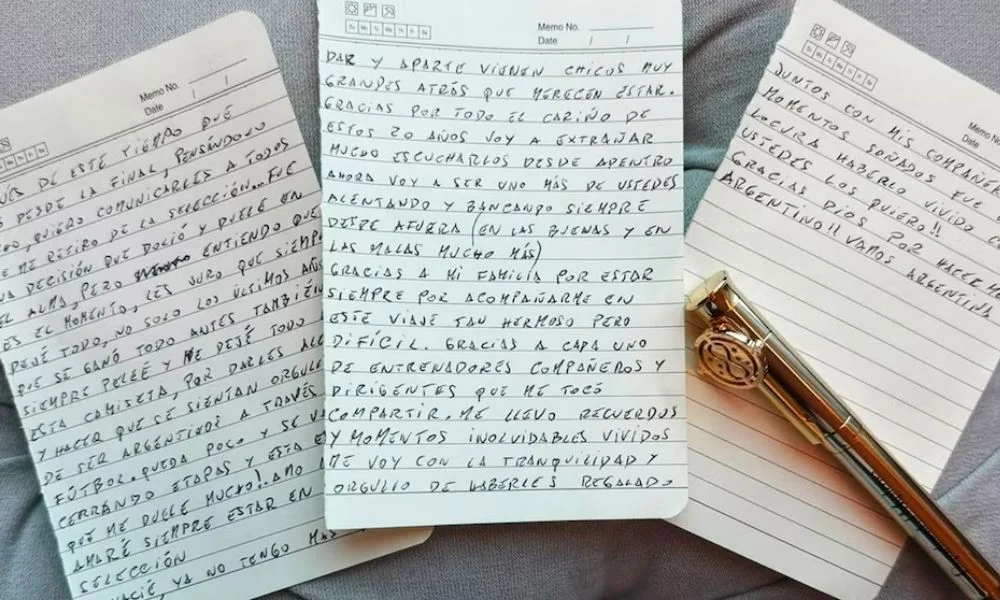 Memo No.
Date / /
UÉS DE ESTE TIEMPO QUE
DESDE LA FINAL, PENSÁNDOLO
QUIERO COMUNICARLES A TODOS
ME RETIRO DE LA SELECCIÓN... FUE
DECISIÓN QUE DOLIÓ Y DUELE EN
EL ALMA, PERO ENTIENDO QUE
ES EL MOMENTO, LES JURO QUE SIEMP
DEJÉ TODO, NO SOLO LOS ÚLTIMOS AÑOS
QUE SE GANÓ TODO ANTES TAMBIÉN
SIEMPRE PELEÉ Y ME DEJÉ TODO
ESTA CAMISETA, POR DARLES AL
Y HACER QUE SE SIENTAN ORGULL
DE SER ARGENTINOS A TRAVÉS
FÚTBOL. QUEDA POCO Y SE V
CERRANDO ETAPAS Y ESTA E
QUE ME DUELE MUCHO!. AMO L
AMARÉ SIEMPRE ESTAR EN
SELECCIÓN
VACIÉ, YA NO TENGO MAS
Memo No.
Date / /
DAR Y APARTE VIENEN CHICOS MUY
GRANDES ATRÁS QUE MERECEN ESTAR.
GRACIAS POR TODO EL CARIÑO DE
ESTOS 20 AÑOS VOY A EXTRAÑAR
MUCHO ESCUCHARLOS DESDE ADENTRO
AHORA VOY A SER UNO MÁS DE USTEDES
ALENTANDO Y BANCANDO SIEMPRE
DESDE AFUERA (EN LAS BUENAS Y EN
LAS MALAS MUCHO MÁS)
GRACIAS A MI FAMILIA POR ESTAR
SIEMPRE POR ACOMPAÑARME EN
ESTE VIAJE TAN HERMOSO PERO
DIFÍCIL. GRACIAS A CADA UNO
DE ENTRENADORES COMPAÑEROS Y
DIRIGENTES QUE ME TOCÓ
COMPARTIR. ME LLEVO RECUERDOS
Y MOMENTOS INOLVIDABLES VIVIDOS
ME VOY CON LA TRANQUILIDAD Y
ORGULLO DE HABERLES REGALADO
Memo No.
Date
JUNTOS CON MIS COMPAÑER
MOMENTOS SOÑADOS FUE
LOCURA HABERLO VIVIDO C
USTEDES LOS QUIERO!!
GRACIAS DIOS POR HACERM
ARGENTINO!! VAMOS ARGENTINA